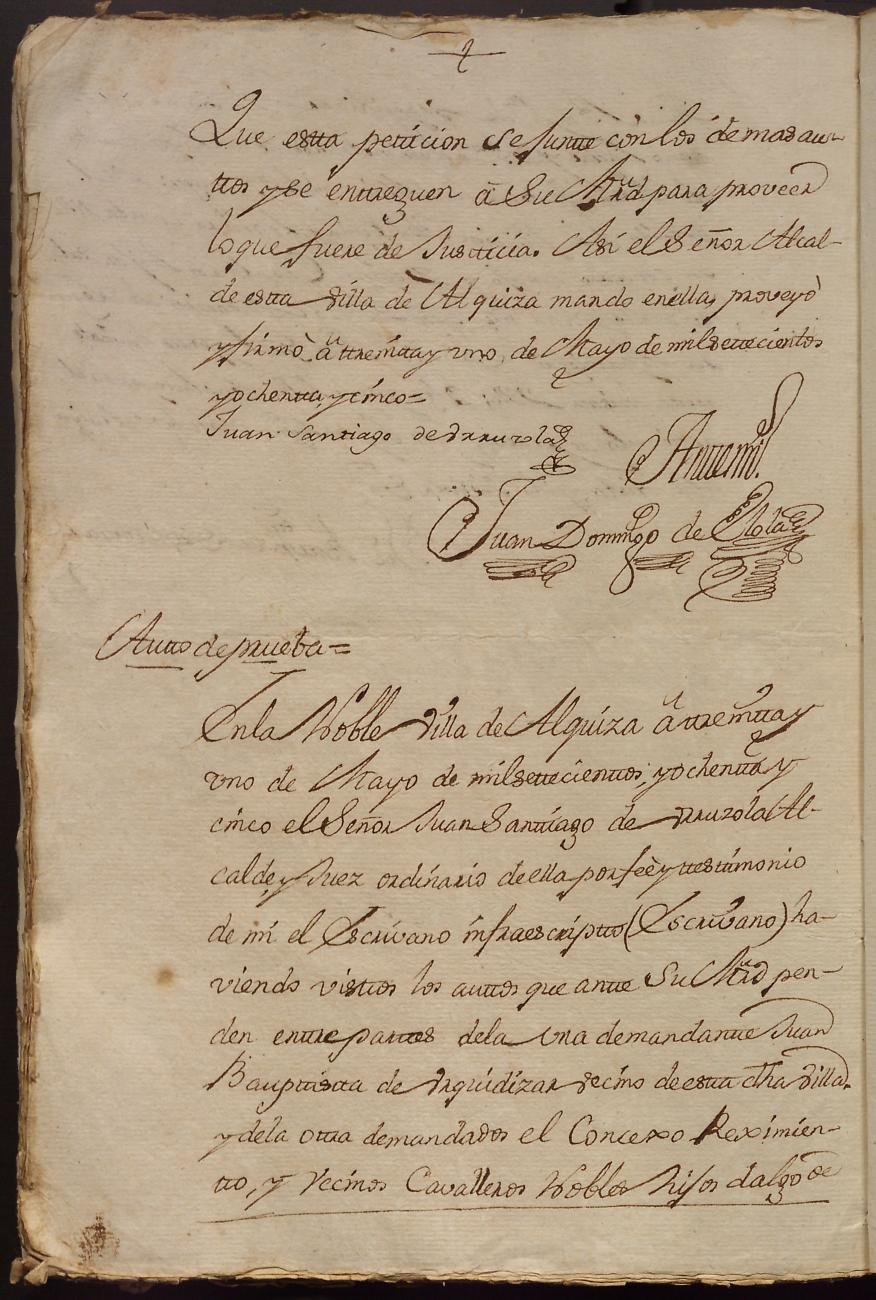 Que estta petticion se juntte con los demas au-
ttos y se enttreguen â Su Mrd para proveer
lo que fuere de Justticia. Asi el Señor Alcal-
de estta Villa de Alquiza mando en ella, proveyò
y firmò, â ttreintta y uno, de Mayo de mil settecienttos
y ochentta, y cinco=
Juan Santiago de Yrruzola
Antte mi.
Juan Domingo de Elola
Autto de prueba=
En la Noble Villa de Alquiza â ttreintta y
uno de Mayo de mil settecienttos, y ochentta y
cinco el Señor Juan Santtiago de Yrruzola Al-
calde, y Juez ordinario de ella por feè y testtimonio
de mi el Escrivano infraescriptto (Escrivano) ha-
viendo visttos los auttos que antte Su Mrd pen-
den enttre parttes de la una demandantte Juan
Bauptistta de Yrquidizar vecino de estta dha Villa,
y de la ottra demandados el Concexo Reximien-
tto, y Vecinos Cavalleros Nobles hijos dalgo de